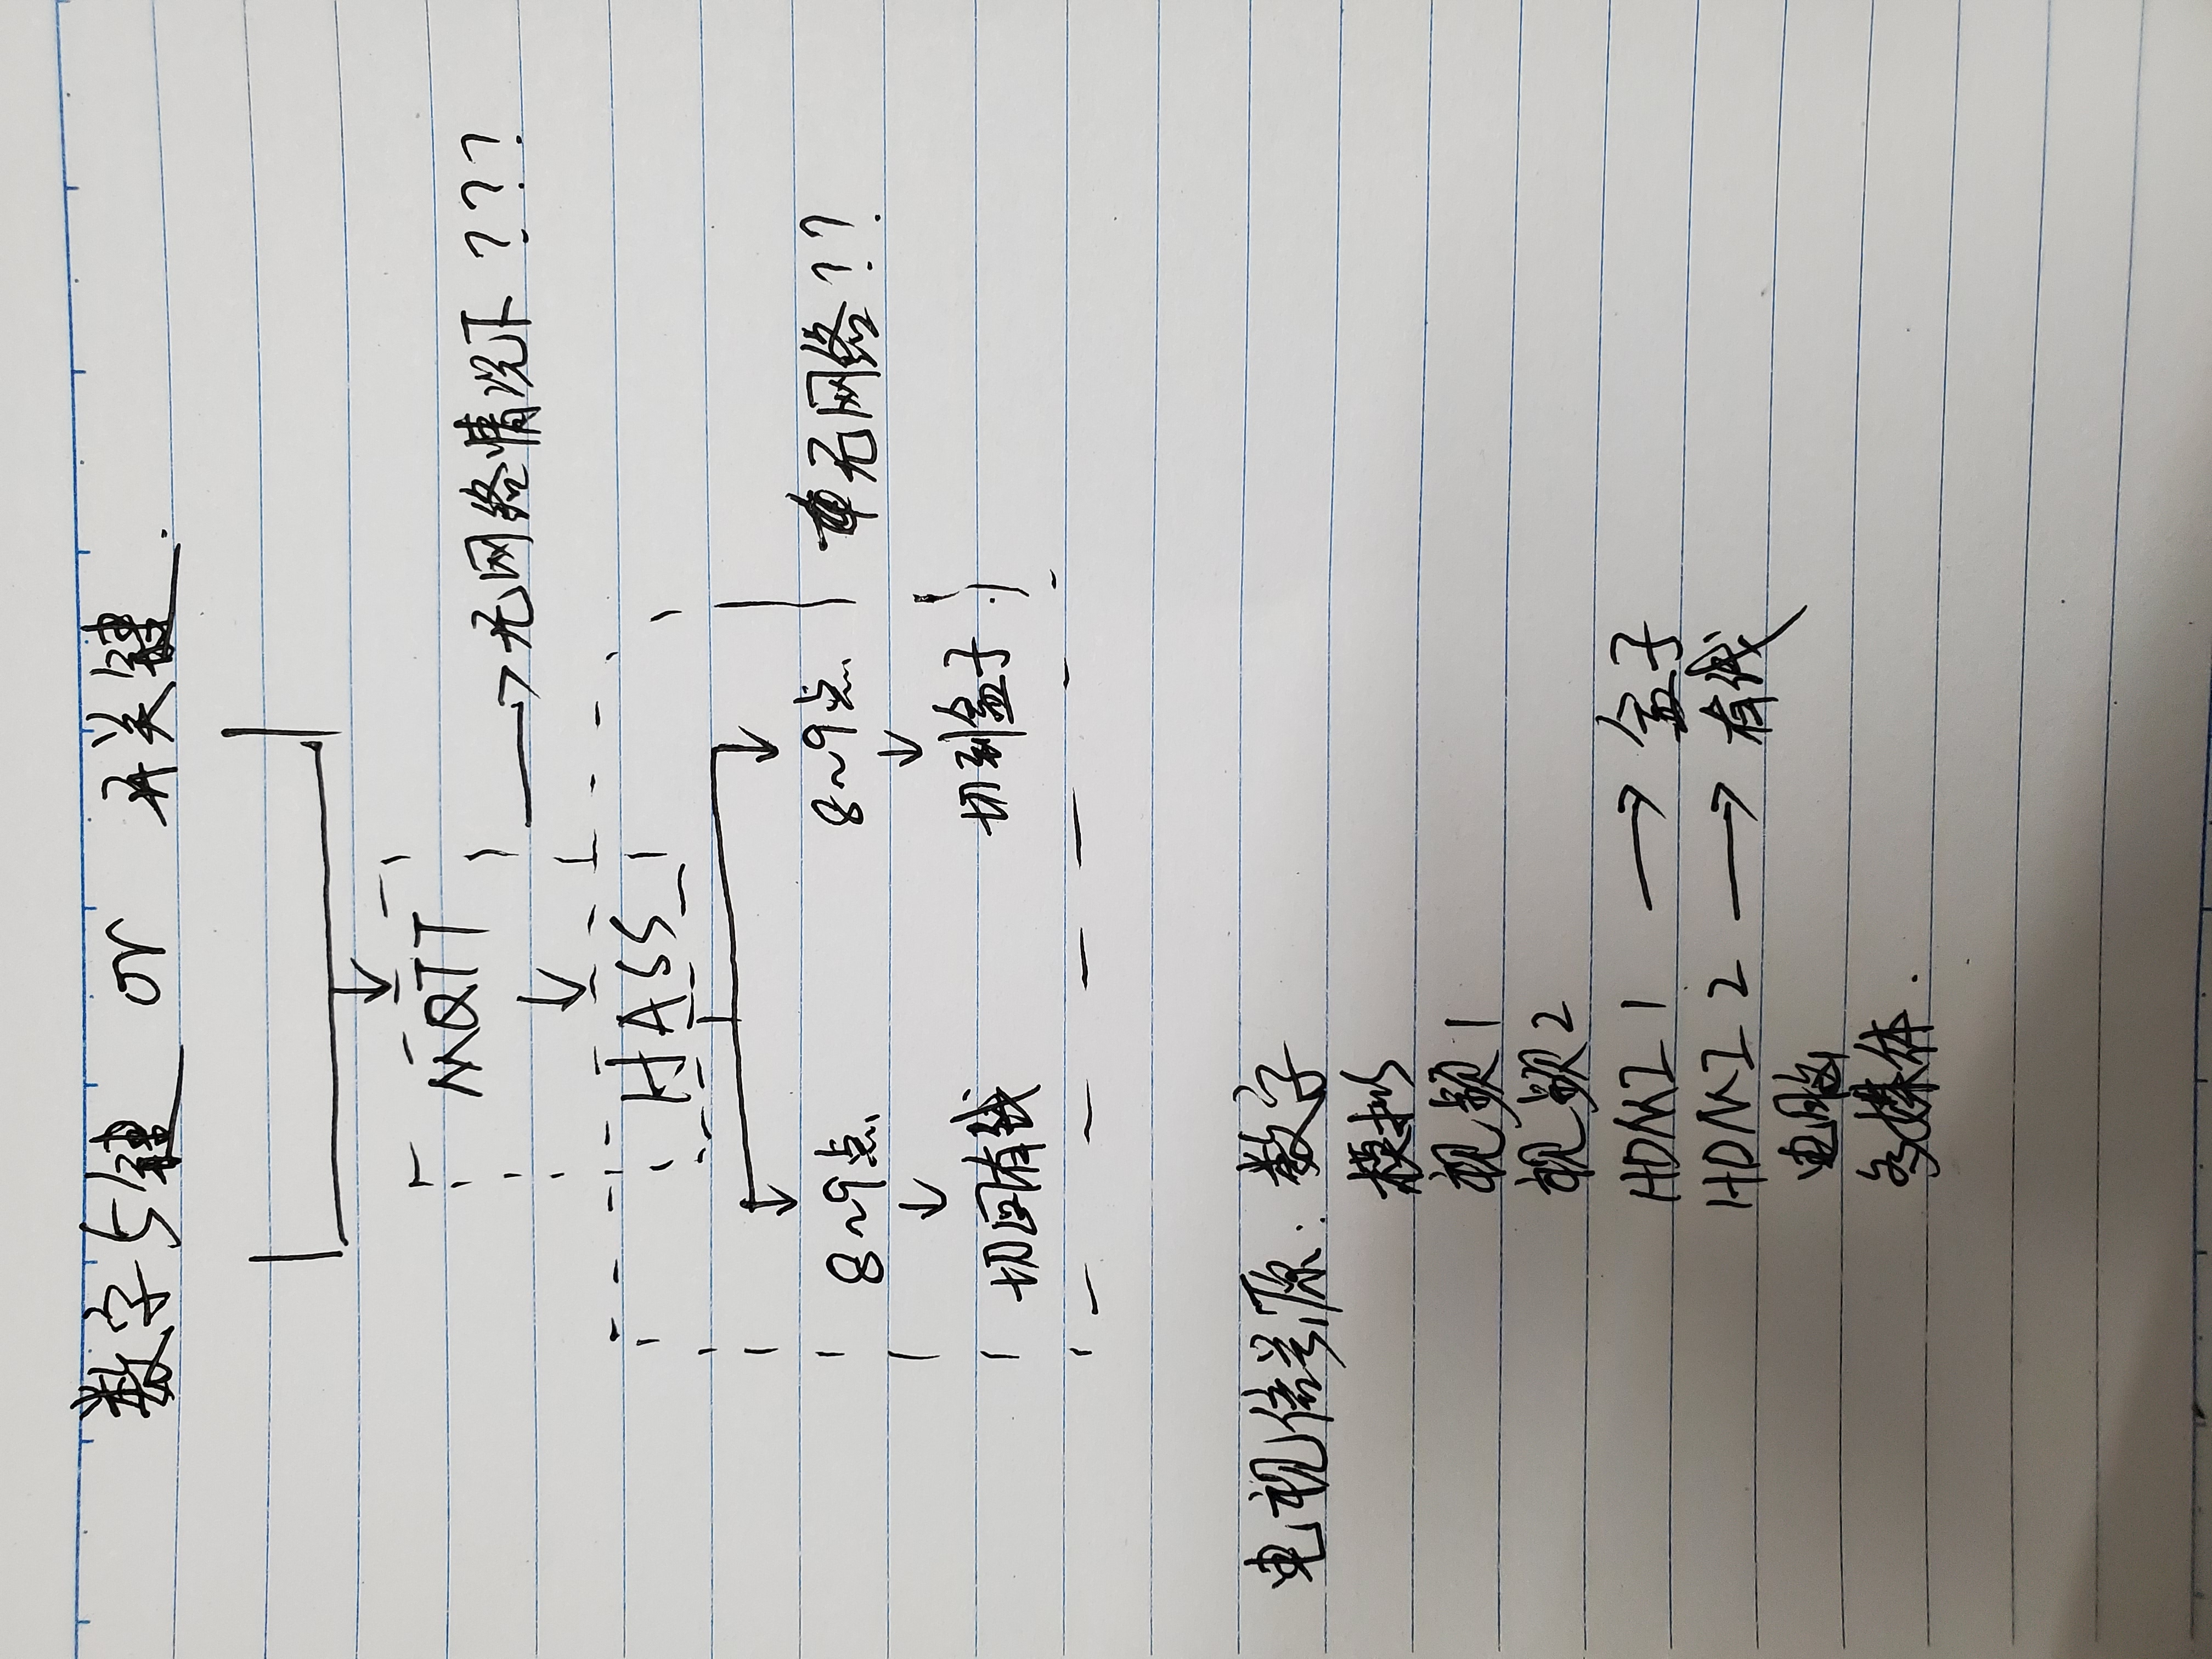 数字5键 or 开关键.
MQTT → 无网络情况下???
HASS
8~9点 8~9点 无网络??
切回有线 切到盒子
电视信号源: 数字
模拟
视频1
视频2
HDMI 1 → 盒子
HDMI 2 → 有线
电脑
多媒体.